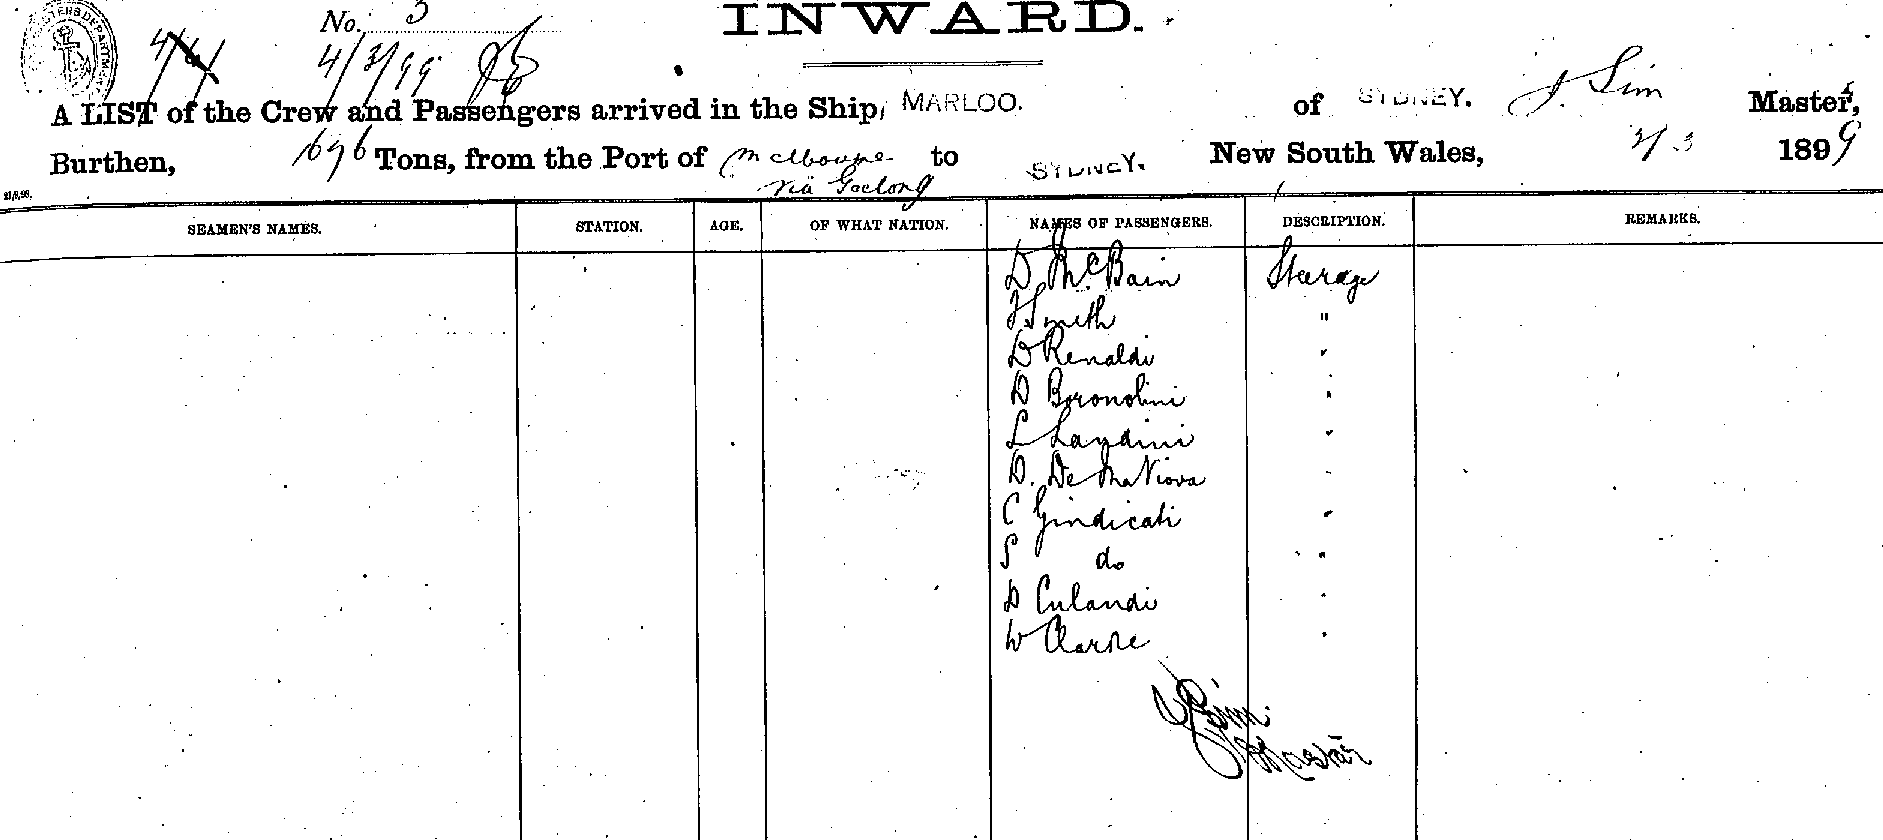 No. 3
INWARD.
4/3/99
A LIST of the Crew and Passengers arrived in the Ship, MARLOO. of SYDNEY. J. Sim Master,
Burthen, 1696 Tons, from the Port of Melbourne to SYDNEY. New South Wales, 2/3 1899
via Geelong
SEAMEN'S NAMES. STATION. AGE. OF WHAT NATION. NAMES OF PASSENGERS. DESCRIPTION. REMARKS.
D McBain Steerage
J Smith "
D Renaldi "
D Boronolini "
L Landini "
D. De "
C Gindicati "
S do "
D Culandi "
W Clarke "
J Sim
Master